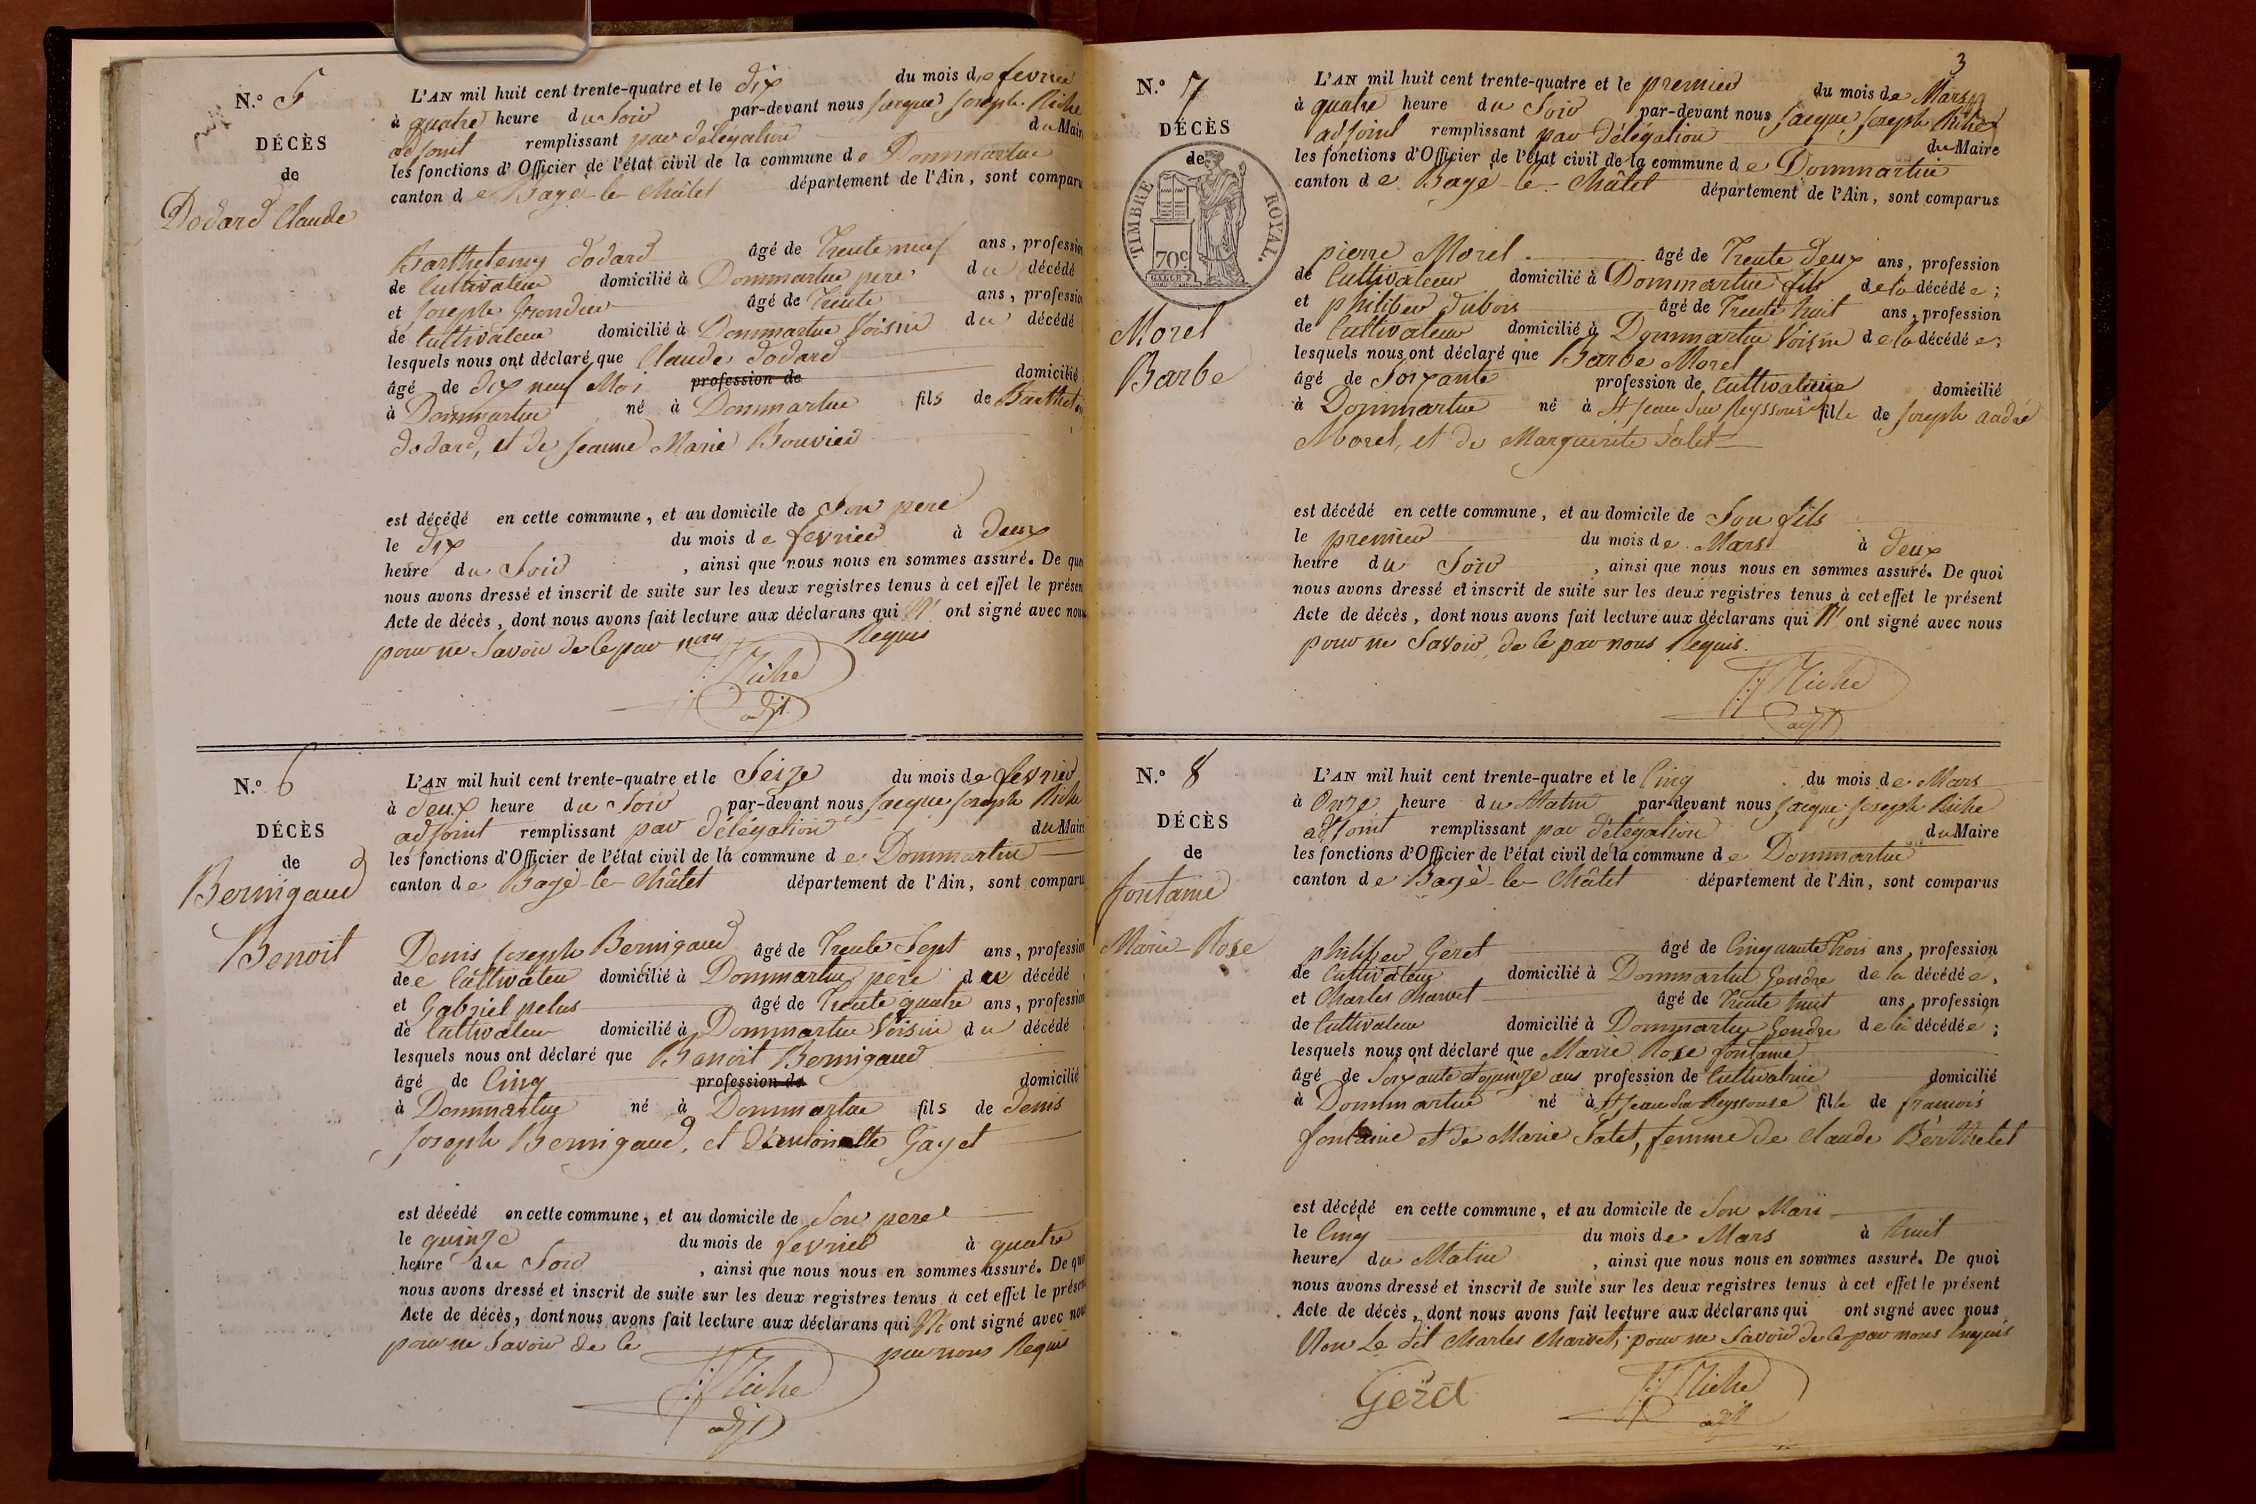 N.º 5
DÉCÈS
de
Dodard Claude
L'AN mil huit cent trente-quatre et le dix du mois de fevrier
à quatre heure du Soir par-devant nous Jacque Joseph Riche
adjoint remplissant par délégation du Mair
les fonctions d'Officier de l'état civil de la commune de Dommartin
canton de Bagé-le-Châtel département de l'Ain, sont comparu
Barthelemy Dodard âgé de Trente neuf ans, profession
de Cultivateur domicilié à Dommartin pere du décédé
et Joseph âgé de Trente ans, profession
de Cultivateur domicilié à Dommartin Voisin du décédé
lesquels nous ont déclaré que Claude Dodard
âgé de dix neuf Mois profession de domicilié
à Dommartin né à Dommartin fils de Barthel
Dodard, et de Jeanne Marie Bouvier
est décédé en cette commune, et au domicile de Son pere
le dix du mois de fevrier à deux
heure du Soir, ainsi que nous nous en sommes assuré. De quoi
nous avons dressé et inscrit de suite sur les deux registres tenus à cet effet le présen
Acte de décès, dont nous avons fait lecture aux déclarans qui N' ont signé avec nous
pour ne Savoir de ce par nous Requis
Riche
adjt
N.º 6
DÉCÈS
de
Bernigaud
Benoit
L'AN mil huit cent trente-quatre et le Seize du mois de fevrier
à deux heure du Soir par-devant nous Jacque Joseph Riche
adjoint remplissant par délégation du Mair
les fonctions d'Officier de l'état civil de la commune de Dommartin
canton de Bagé-le-Châtel département de l'Ain, sont comparu
Denis Joseph Bernigaud âgé de Trente Sept ans, profession
de Cultivateur domicilié à Dommartin pere du décédé
et Gabriel pelus âgé de Trente quatre ans, profession
de Cultivateur domicilié à Dommartin Voisin du décédé
lesquels nous ont déclaré que Benoit Bernigaud
âgé de Cinq profession de domicilié
à Dommartin né à Dommartin fils de denis
Joseph Bernigaud, et d'entoinette Gayet
est décédé en cette commune, et au domicile de Son pere
le quinze du mois de fevrier à quatre
heure du Soir, ainsi que nous nous en sommes assuré. De quoi
nous avons dressé et inscrit de suite sur les deux registres tenus à cet effet le présen
Acte de décès, dont nous avons fait lecture aux déclarans qui N' ont signé avec nous
pour ne Savoir de ce par nous Requis
Riche
adjt
3
N.º 7
DÉCÈS
de
TIMBRE ROYAL.
70c
Morel
Barbe
L'AN mil huit cent trente-quatre et le premier du mois de Mars
à quatre heure du Soir par-devant nous Jacque Joseph Riche
adjoint remplissant par délégation du Maire
les fonctions d'Officier de l'état civil de la commune de Dommartin
canton de Bagé-le-Châtel département de l'Ain, sont comparus
pierre Morel âgé de Trente Deux ans, profession
de Cultivateur domicilié à Dommartin fils de la décédée;
et philiber Dubois âgé de Trente huit ans, profession
de Cultivateur domicilié à Dommartin Voisin de la décédée;
lesquels nous ont déclaré que Barbe Morel
âgé de Soixante profession de Cultivatrice domicilié
à Dommartin né à St Jean Sur Reyssouse fille de Joseph
Morel, et de Marguerite
est décédé en cette commune, et au domicile de Son fils
le premier du mois de Mars à deux
heure du Soir, ainsi que nous nous en sommes assuré. De quoi
nous avons dressé et inscrit de suite sur les deux registres tenus à cet effet le présent
Acte de décès, dont nous avons fait lecture aux déclarans qui N' ont signé avec nous
pour ne Savoir de ce par nous Requis.
Riche
adjt
N.º 8
DÉCÈS
de
fontaine
Marie-Rose
L'AN mil huit cent trente-quatre et le Cinq du mois de Mars
à Onze heure du Matin par-devant nous Jacque Joseph Riche
adjoint remplissant par délégation du Maire
les fonctions d'Officier de l'état civil de la commune de Dommartin
canton de Bagé-le-Châtel département de l'Ain, sont comparus
philiber Geret âgé de Cinquante Trois ans, profession
de Cultivateur domicilié à Dommartin Gendre de la décédée,
et Charles Charvet âgé de Trente huit ans, profession
de Cultivateur domicilié à Dommartin Gendre de la décédée;
lesquels nous ont déclaré que Marie Rose fontaine
âgé de Soixante et quinze ans profession de Cultivatrice domicilié
à Dommartin né à St Jean Sur Reyssouse fille de francois
fontaine et de Marie Talet, femme de Claude Berthelet
est décédé en cette commune, et au domicile de Son Mari
le Cinq du mois de Mars à huit
heure du Matin, ainsi que nous nous en sommes assuré. De quoi
nous avons dressé et inscrit de suite sur les deux registres tenus à cet effet le présent
Acte de décès, dont nous avons fait lecture aux déclarans qui ont signé avec nous
Non Le dit Charles Charvet, pour ne Savoir de ce par nous Enquis
Geret
Riche
adjt